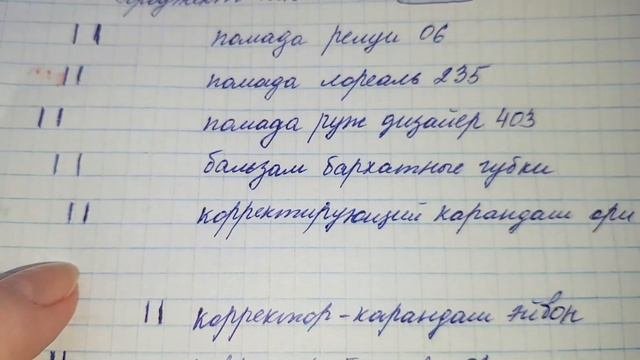 || помада релуи 06
|| помада лореаль 235
|| помада руж дизайер 403
|| бальзам бархатные губки
|| корректирующий карандаш ори
|| корректор-карандаш эйвон
||